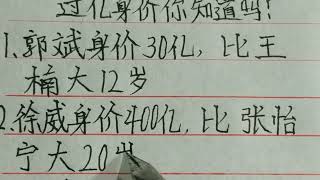 过亿身价你知道吗!
1.郭斌身价30亿,比王
楠大12岁
2.徐威身价400亿,比张怡
宁大20岁